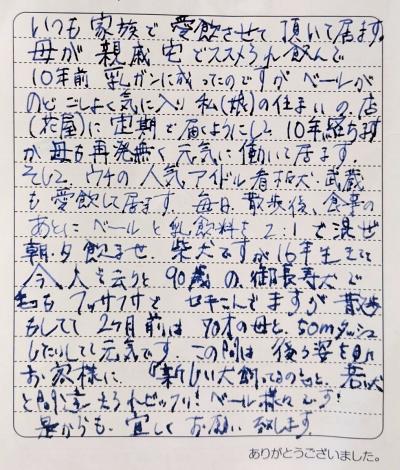 いつも家族で愛飲させて頂いて居ます。
母が親戚宅でススメられ飲んで
10年前乳ガンに成ったのですがベールが
のどごしよく気に入り私(娘)の住まいの店
(花屋)に定期で届くようにして10年経ちます
が母も再発無く元気に働いて居ます。
そしてウチの人気アイドル看板犬・武蔵
も愛飲して居ます。毎日、散歩後、食事の
あとにベールと乳飲料を2:1で混ぜ
朝・夕飲ませ、柴犬ですが16年生きて
今、人で云うと90歳の御長寿犬で
毛もフッサフサで 散歩
もしてて2ヶ月前は70才の母と、50mダッシュ
したりしてて元気です。この間は後ろ姿を見た
お客様に、『新しい犬飼ってるの』と、若い犬
と間違えられビックリ!ベール様々です!
是からも宜しくお願い致します。
ありがとうございました。